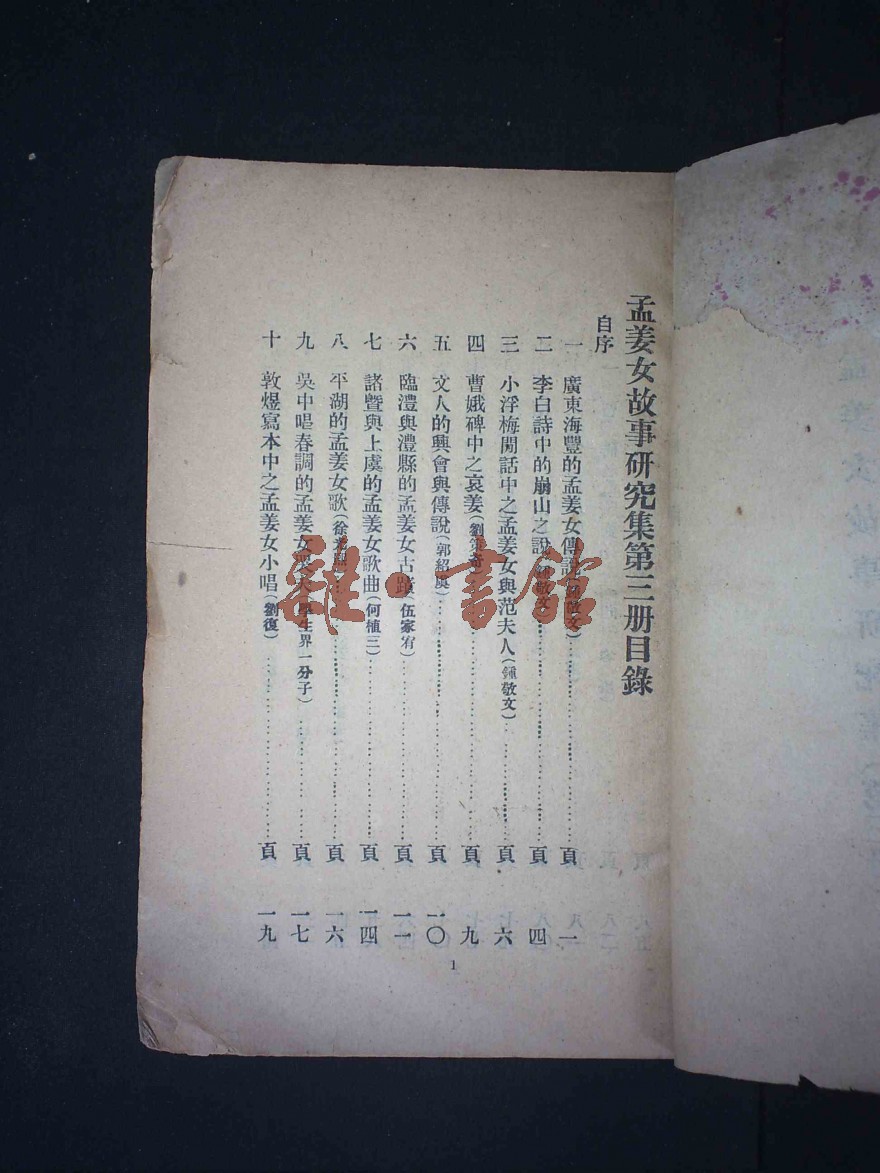 孟姜女故事研究集第三册目錄
自序
一 廣東海豐的孟姜女傳說(敬文)…頁 一
二 李白詩中的崩山之說(鍾敬文)…頁 四
三 小浮梅閒話中之孟姜女與范夫人(鍾敬文)…頁 六
四 曹娥碑中之哀姜(劉策奇)…頁 九
五 文人的興會與傳說(郭紹虞)…頁 一〇
六 臨澧與澧縣的孟姜女古蹟(伍家宥)…頁 一一
七 諸暨與上虞的孟姜女歌曲(何植三)…頁 一四
八 平湖的孟姜女歌(徐)…頁 一六
九 吳中唱春調的孟姜女哭夫(學生界一分子)…頁 一七
十 敦煌寫本中之孟姜女小唱(劉復)…頁 一九
1
雜·書館